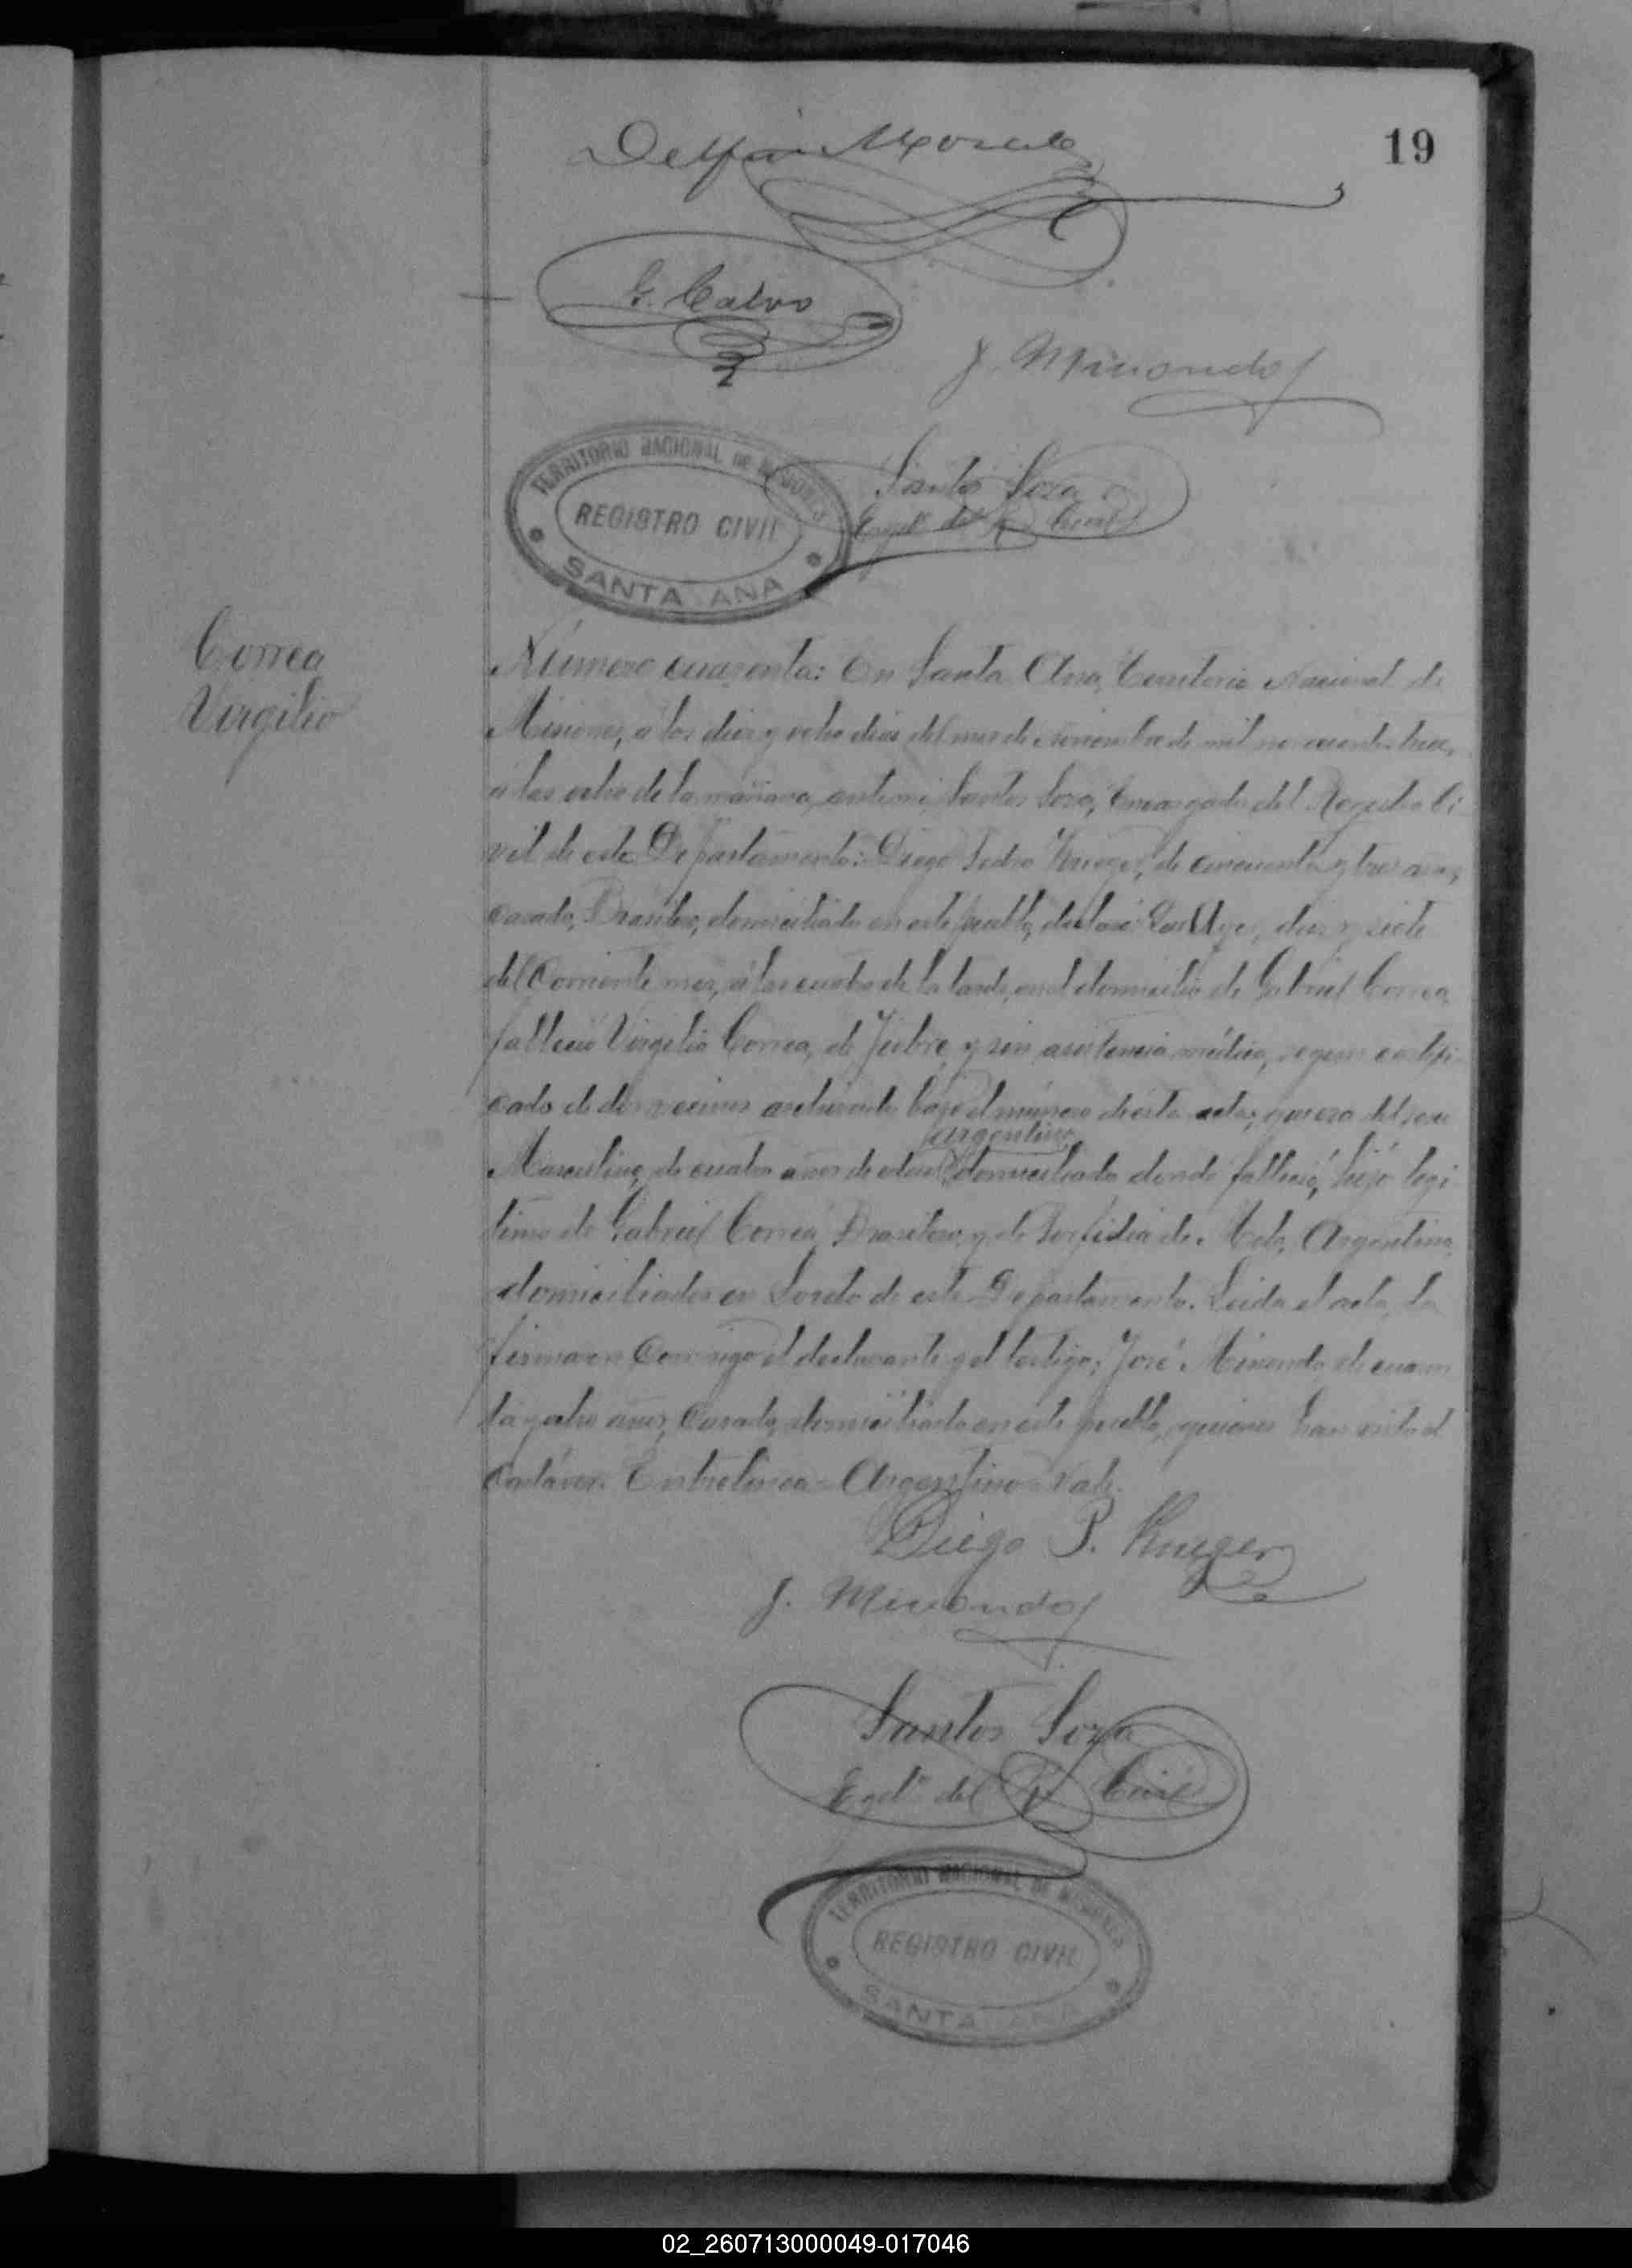 19
Delfin Morale
G. Calvo
J. Minondo
TERRITORIO NACIONAL DE MISIONES
REGISTRO CIVIL
SANTA ANA
Santos Soza
Egdo del R. Civil
Correa
Virgilio
Número cuarenta: En Santa Ana, Territorio Nacional de
Misiones, a los diez y ocho dias del mes de noviembre de mil novecientos trece,
a las ocho de la mañana, ante mi, Santos Soza, Encargado del Registro Ci-
vil de este Departamento: Diego Pedro Krieger, de cincuenta y tres años,
casado, Brasilero, domiciliado en este pueblo, declaró: Que Ayer, diez y siete
del Corriente mes, a las cuatro de la tarde, en el domicilio de Gabriel Correa,
falleció Virgilio Correa, de fiebre, y sin asistencia médica, segun certifi-
cado de dos vecinos archivado bajo el número de esta acta; que era del sexo
argentino
Masculino, de cuatro años de edad, domiciliado donde falleció, hijo legi-
timo de Gabriel Correa, Brasilero, y de Porfidia de Melo, Argentina,
domiciliados en Loreto de este Departamento. Leida el acta, la
firmaron Conmigo el declarante y el testigo: José Minondo, de cuaren-
ta y ocho años, Casado, domiciliado en este pueblo, quienes han visto el
Cadáver. Entrelinea=Argentino=Vale.
Diego P. Krieger
J. Minondo
Santos Soza
Egdo del R. Civil
TERRITORIO NACIONAL DE MISIONES
REGISTRO CIVIL
SANTA ANA
02_260713000049-017046